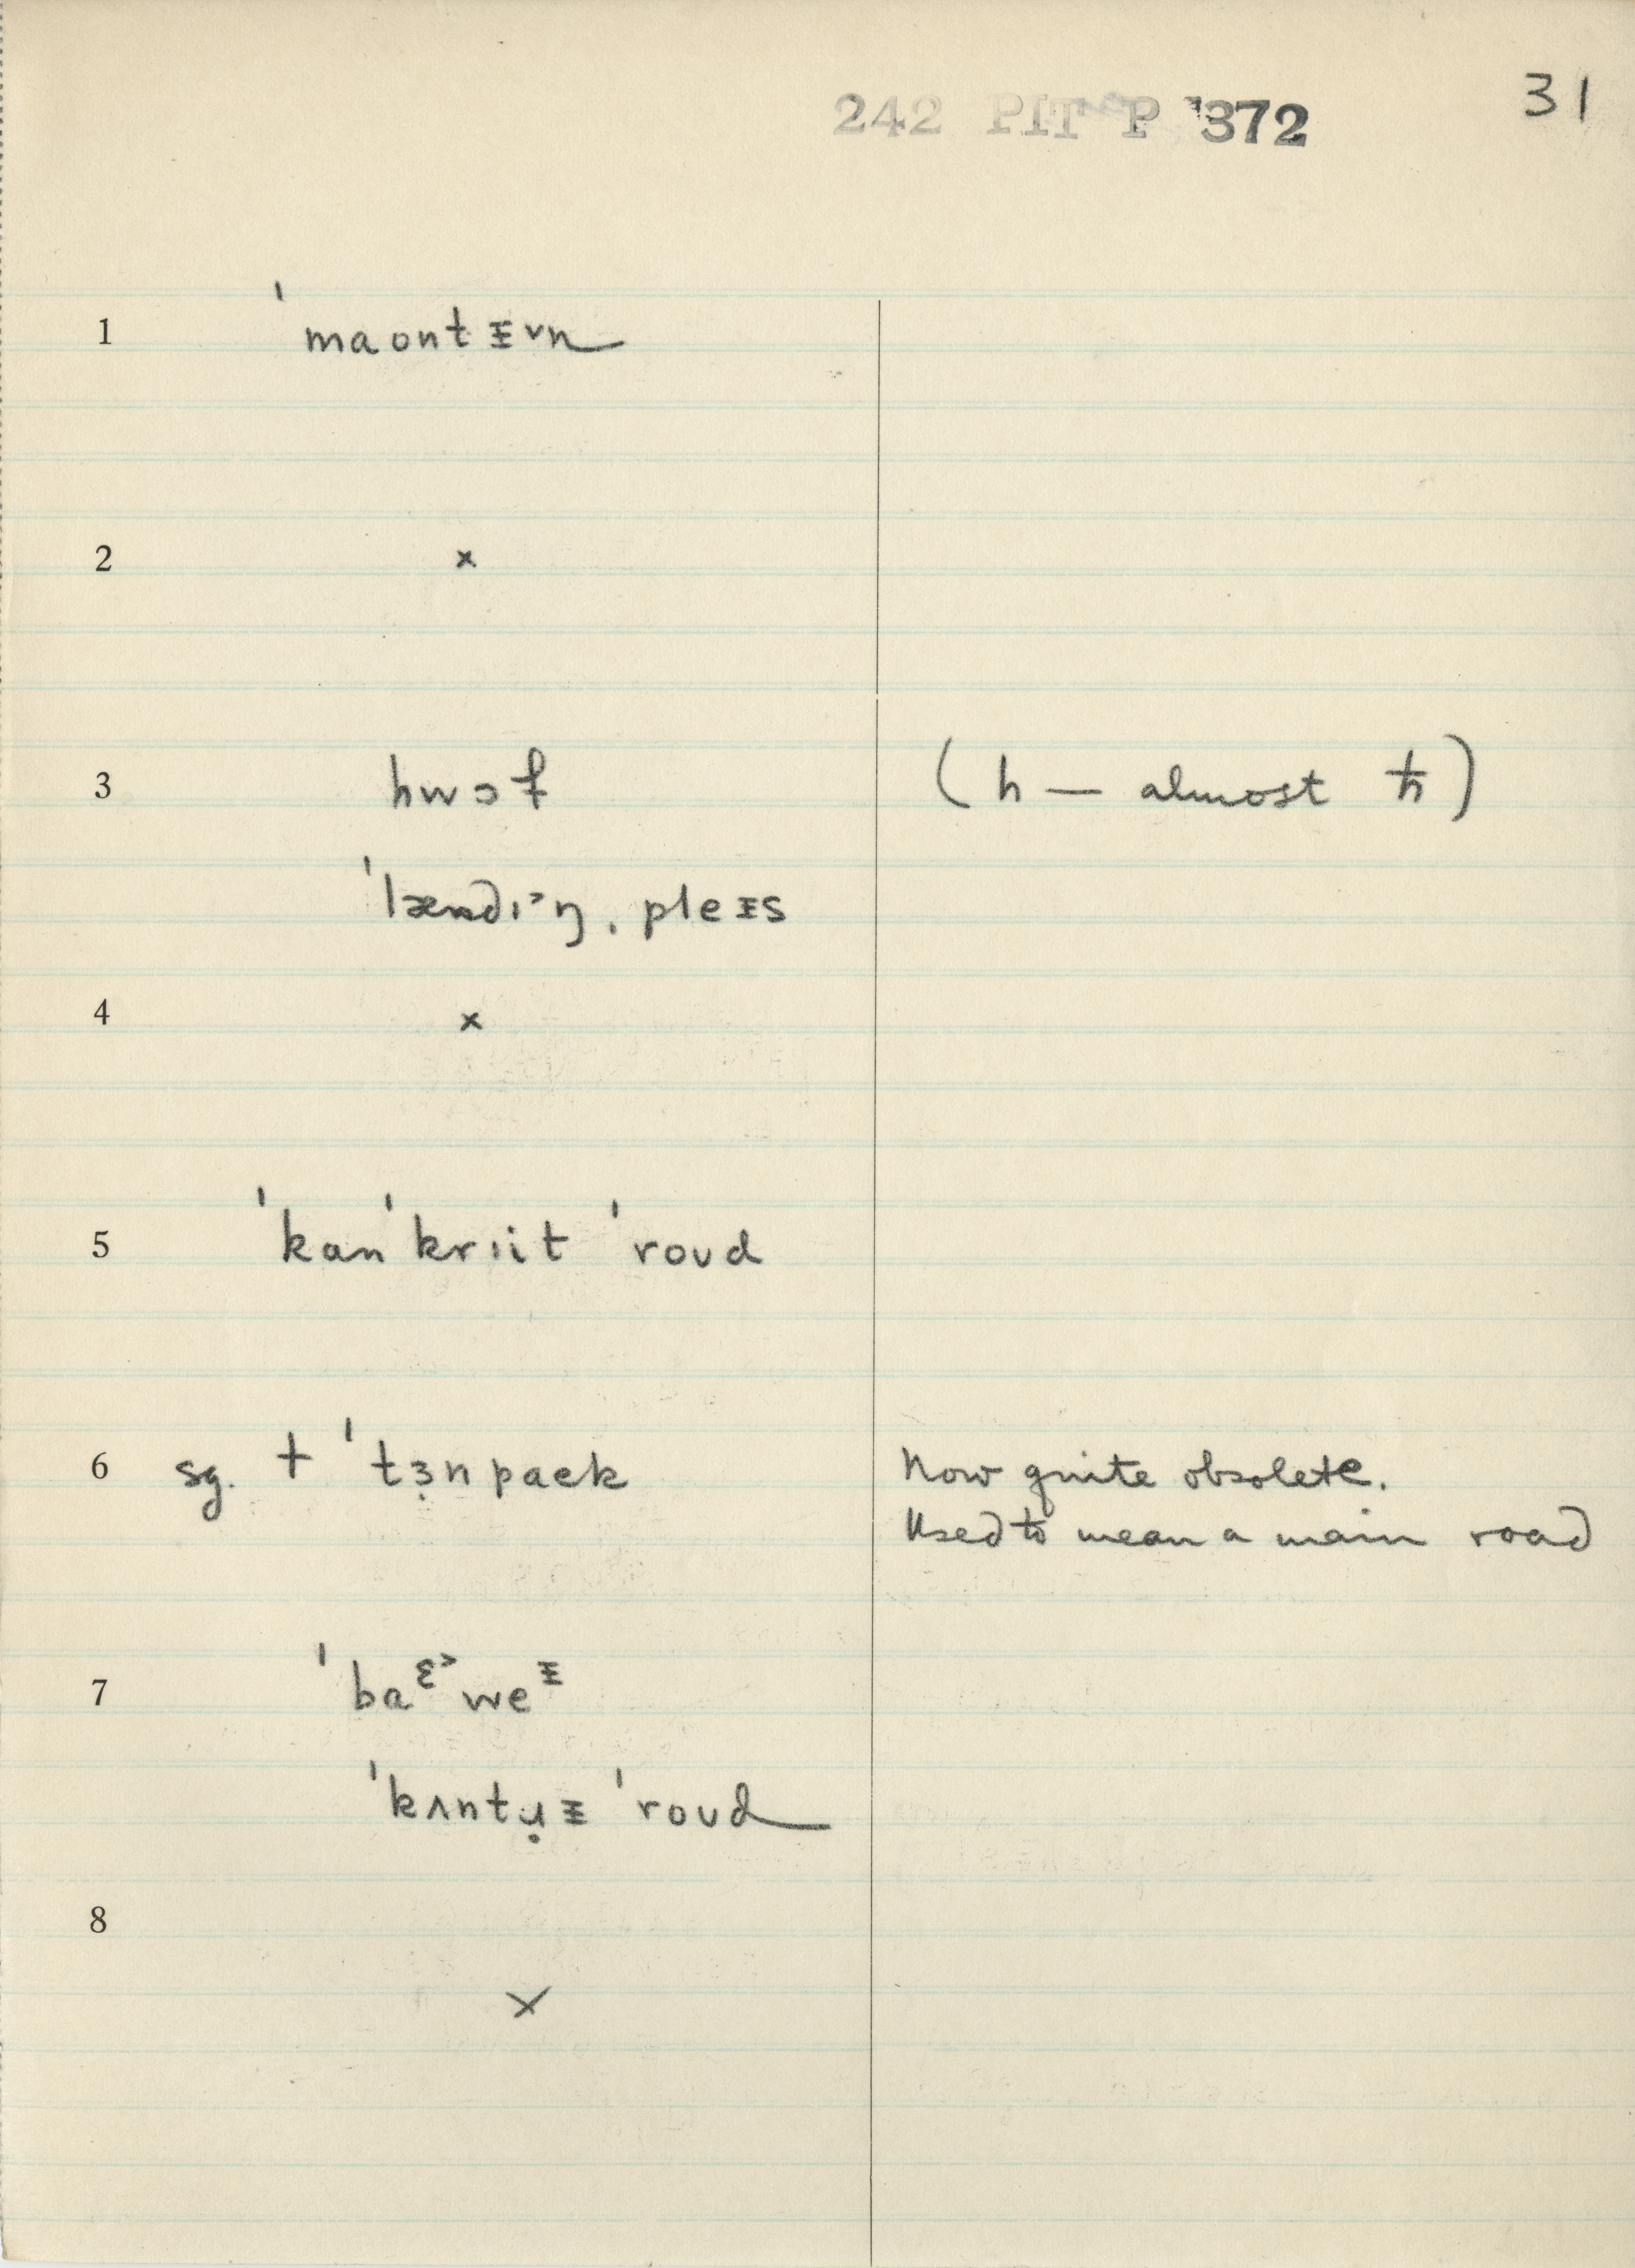 242 PIT P 372
31
1 ˈmaontɪ̵˅n
2 ×
3 hwɔf (h — almost ħ)
ˈlændɪ˃ŋ ˌpleɪ̵s
4 ×
5 ˈkanˈkrɪit ˈroʊd
6 sg. † ˈtɜ̣npaɛk Now quite obsolete.
Used to mean a main road
7 ˈbaᵋ˃weᵻ
ˈkʌntɹ̣ɪ̵ ˈroʊd
8
×